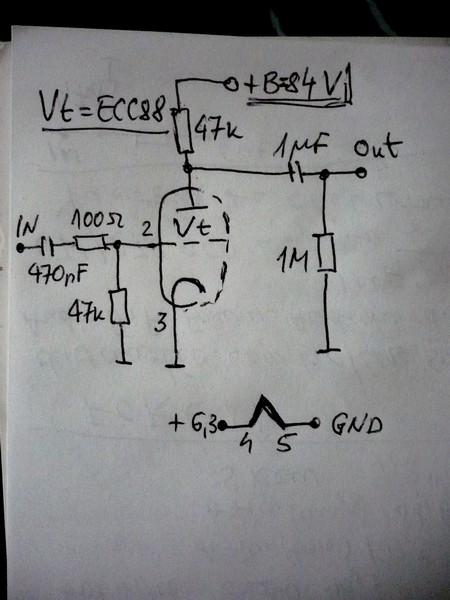 +B=84V
Vt=ECC88
47k
1µF
Out
IN
100Ω
2
Vt
470pF
1M
47k
3
+6,3
4
5
GND